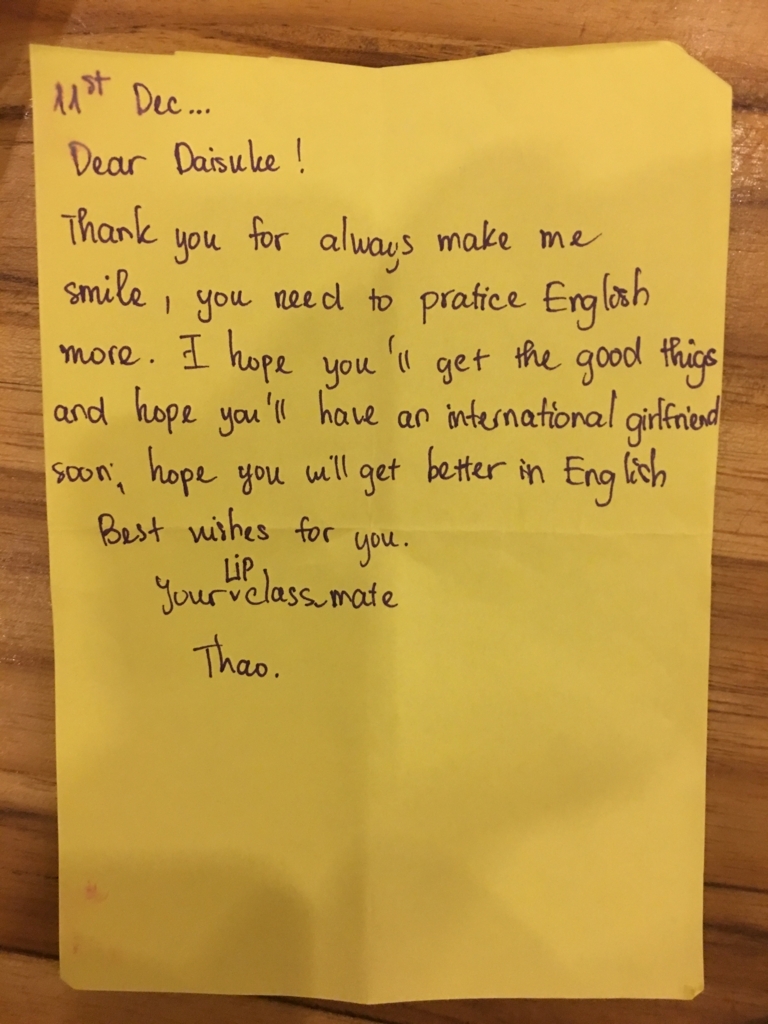 11st Dec...
Dear Daisuke !
Thank you for always make me
smile, you need to pratice English
more. I hope you'll get the good thigs
and hope you'll have an international girlfriend
soon, hope you will get better in English
Best wishes for you.
Your LIP classmate
Thao.